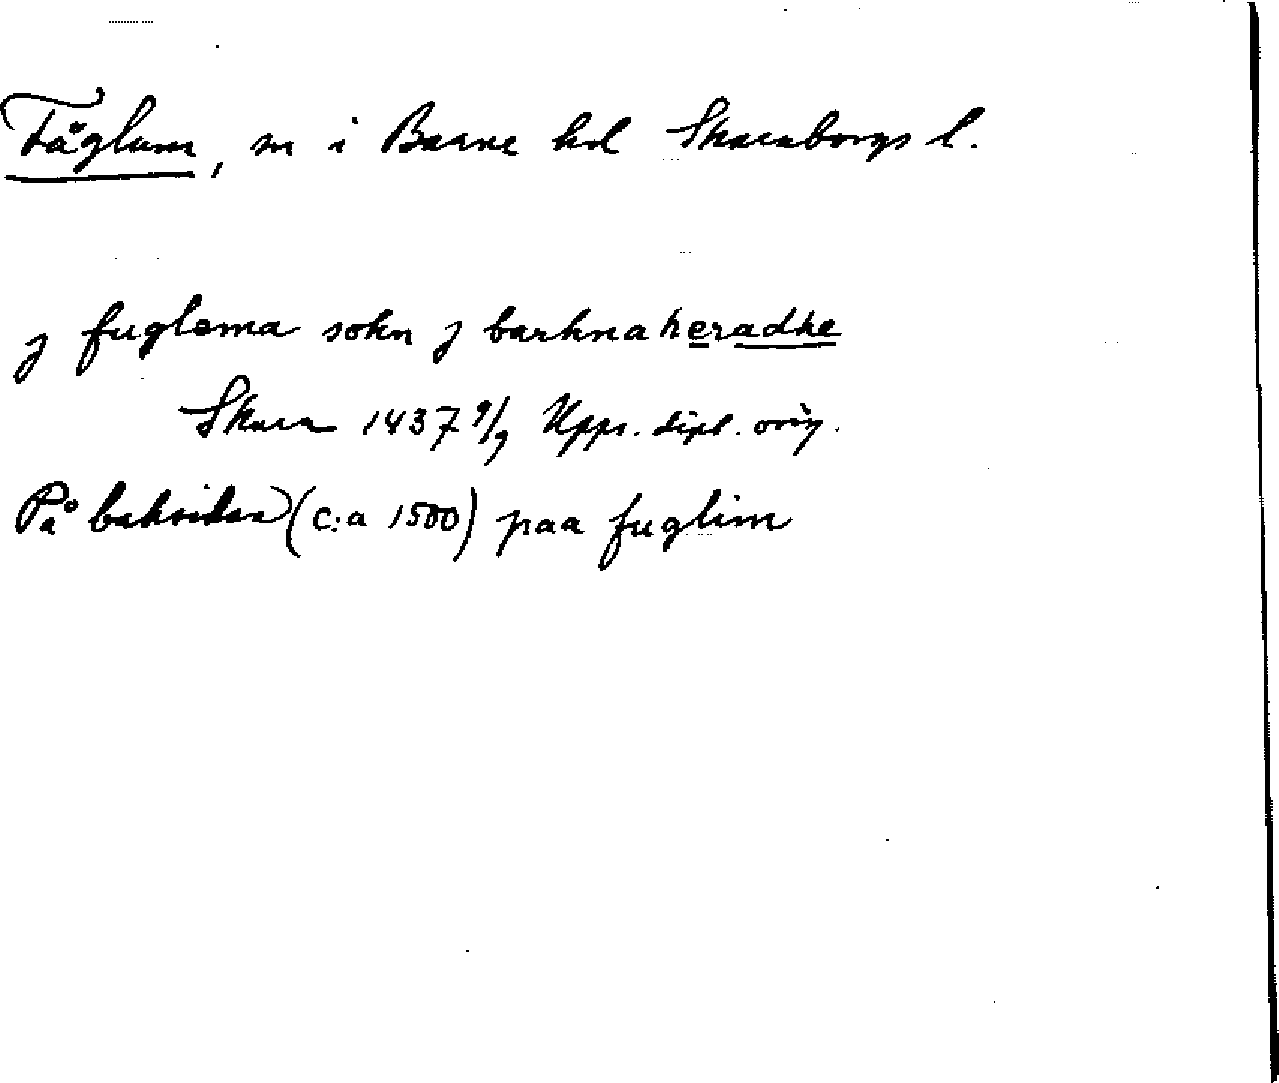 Fåglum, sn i Barne hd Skaraborgs l.
j fuglema sokn j barknaheradhe
Skara 1437 9/9 Upps. dipl. orig.
På baksidan (c:a 1500) paa fuglim